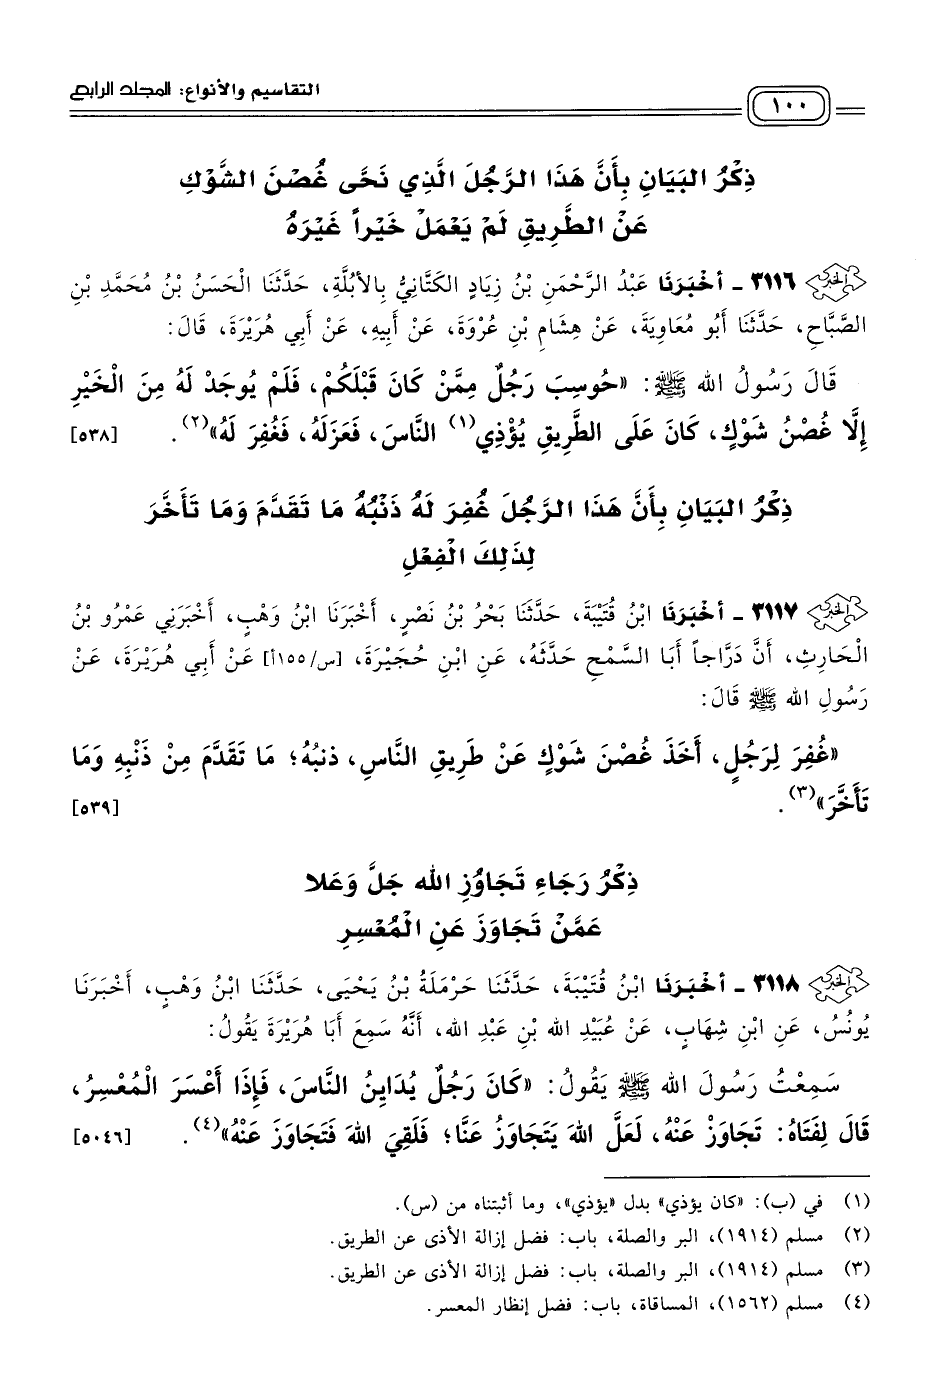 التقاسيم والأنواع: المجلد الرابع
١٠٠
ذِكْرُ البَيَانِ بِأَنَّ هَذَا الرَّجُلَ الَّذِي نَحَّى غُصْنَ الشَّوْكِ
عَنْ الطَّرِيقِ لَمْ يَعْمَلْ خَيْراً غَيْرَهُ
٣١١٦ - أخْبَرَنَا عَبْدُ الرَّحْمَنِ بْنُ زِيَادٍ الكَتَّانِيُّ بِالأُبُلَّةِ، حَدَّثَنَا الْحَسَنُ بْنُ مُحَمَّدِ بْنِ
الصَّبَّاحِ، حَدَّثَنَا أَبُو مُعَاوِيَةَ، عَنْ هِشَامِ بْنِ عُرْوَةَ، عَنْ أَبِيهِ، عَنْ أَبِي هُرَيْرَةَ، قَالَ:
قَالَ رَسُولُ الله ﷺ: «حُوسِبَ رَجُلٌ مِمَّنْ كَانَ قَبْلَكُمْ، فَلَمْ يُوجَدْ لَهُ مِنَ الْخَيْرِ
إِلَّا غُصْنُ شَوْكٍ، كَانَ عَلَى الطَّرِيقِ يُؤْذِي(١) النَّاسَ، فَعَزَلَهُ، فَغُفِرَ لَهُ»(٢). [٥٣٨]
ذِكْرُ البَيَانِ بِأَنَّ هَذَا الرَّجُلَ غُفِرَ لَهُ ذَنْبُهُ مَا تَقَدَّمَ وَمَا تَأَخَّرَ
لِذَلِكَ الْفِعْلِ
٣١١٧ - أخْبَرَنَا ابْنُ قُتَيْبَةَ، حَدَّثَنَا بَحْرُ بْنُ نَصْرٍ، أَخْبَرَنَا ابْنُ وَهْبٍ، أَخْبَرَنِي عَمْرُو بْنُ
الْحَارِثِ، أَنَّ دَرَّاجاً أَبَا السَّمْحِ حَدَّثَهُ، عَنِ ابْنِ حُجَيْرَةَ، [س/١٥٥أ] عَنْ أَبِي هُرَيْرَةَ، عَنْ
رَسُولِ الله ﷺ قَالَ:
«غُفِرَ لِرَجُلٍ، أَخَذَ غُصْنَ شَوْكٍ عَنْ طَرِيقِ النَّاسِ، ذنبُهُ؛ مَا تَقَدَّمَ مِنْ ذَنْبِهِ وَمَا
تَأَخَّرَ»(٣). [٥٣٩]
ذِكْرُ رَجَاءِ تَجَاوُزِ الله جَلَّ وَعَلا
عَمَّنْ تَجَاوَزَ عَنِ الْمُعْسِرِ
٣١١٨ - أخْبَرَنَا ابْنُ قُتَيْبَةَ، حَدَّثَنَا حَرْمَلَةُ بْنُ يَحْيَى، حَدَّثَنَا ابْنُ وَهْبٍ، أَخْبَرَنَا
يُونُسُ، عَنِ ابْنِ شِهَابٍ، عَنْ عُبَيْدِ الله بْنِ عَبْدِ الله، أَنَّهُ سَمِعَ أَبَا هُرَيْرَةَ يَقُولُ:
سَمِعْتُ رَسُولَ الله ﷺ يَقُولُ: «كَانَ رَجُلٌ يُدَايِنُ النَّاسَ، فَإِذَا أَعْسَرَ الْمُعْسِرُ،
قَالَ لِفَتَاهُ: تَجَاوَزْ عَنْهُ، لَعَلَّ اللهَ يَتَجَاوَزُ عَنَّا؛ فَلَقِيَ اللهَ فَتَجَاوَزَ عَنْهُ»(٤). [٥٠٤٦]
(١) في (ب): «كان يؤذي» بدل «يؤذي»، وما أثبتناه من (س).
(٢) مسلم (١٩١٤)، البر والصلة، باب: فضل إزالة الأذى عن الطريق.
(٣) مسلم (١٩١٤)، البر والصلة، باب: فضل إزالة الأذى عن الطريق.
(٤) مسلم (١٥٦٢)، المساقاة، باب: فضل إنظار المعسر.